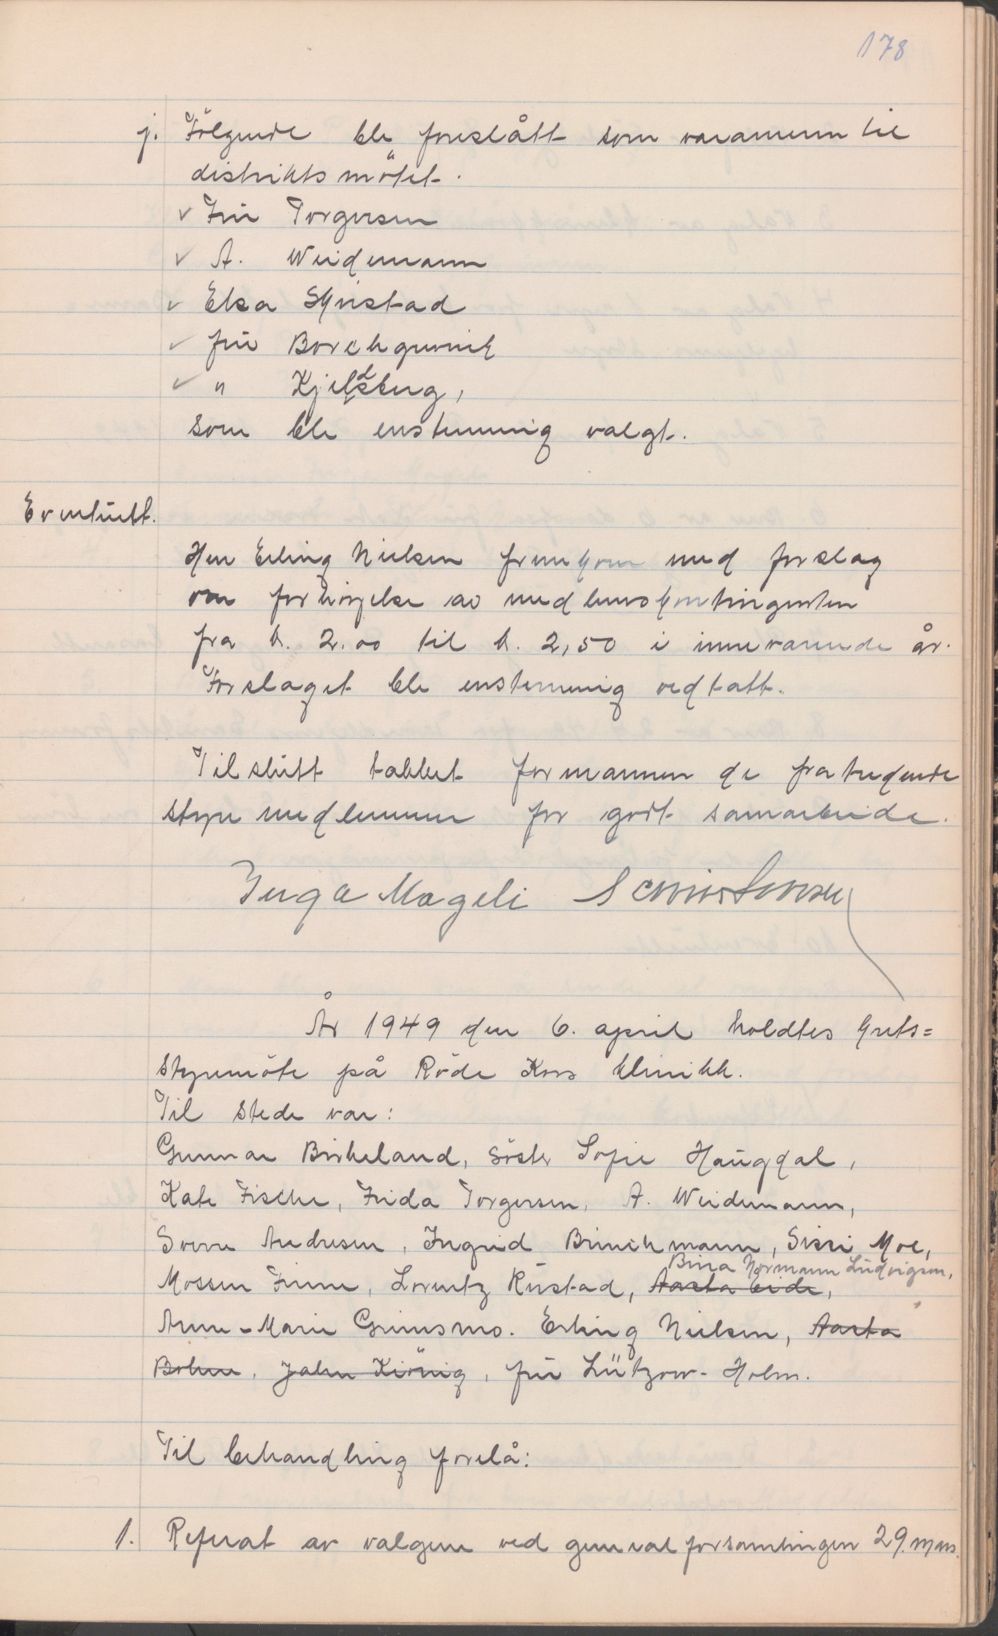 178
j. Følgende ble foreslått som varamenn til
distriktsmøtet.
✓ Fru Torgersen
✓ A. Weidemann
✓ Elsa Skjristad
✓ fru Borchgrevink
✓ " Kjeldsberg,
som ble enstemmig valgt.
Eventuelt.
Herr Erling Nielsen fremkom med forslag
om forhøyelse av medlemskontingenten
fra k. 2.00 til k. 2,50 i inneværende år.
Forslaget ble enstemmig vedtatt.
Til slutt takket formannen de fratredende
styremedlemmer for godt samarbeide.
Inga Mageli
År 1949 den 6. april holdtes krets=
styremøte på Røde Kors klinikk.
Til stede var:
Gunnar Birkeland, søster Sofie Haugdal,
Kate Fischer, Frida Torgersen, A. Weidemann,
Sverre Andresen, Ingrid Brinchmann, Sissi Moe,
Bina Normann Ludvigsen,
Mossen Finne, Lorentz Rustad, Aasta Eide,
Anne-Marie Grimsmo. Erling Nielsen, Aasta
Bohne, John Kiönig, fru Lützow-Holm.
Til behandling forelå:
1. Referat av valgene ved generalforsamlingen 29. mars.